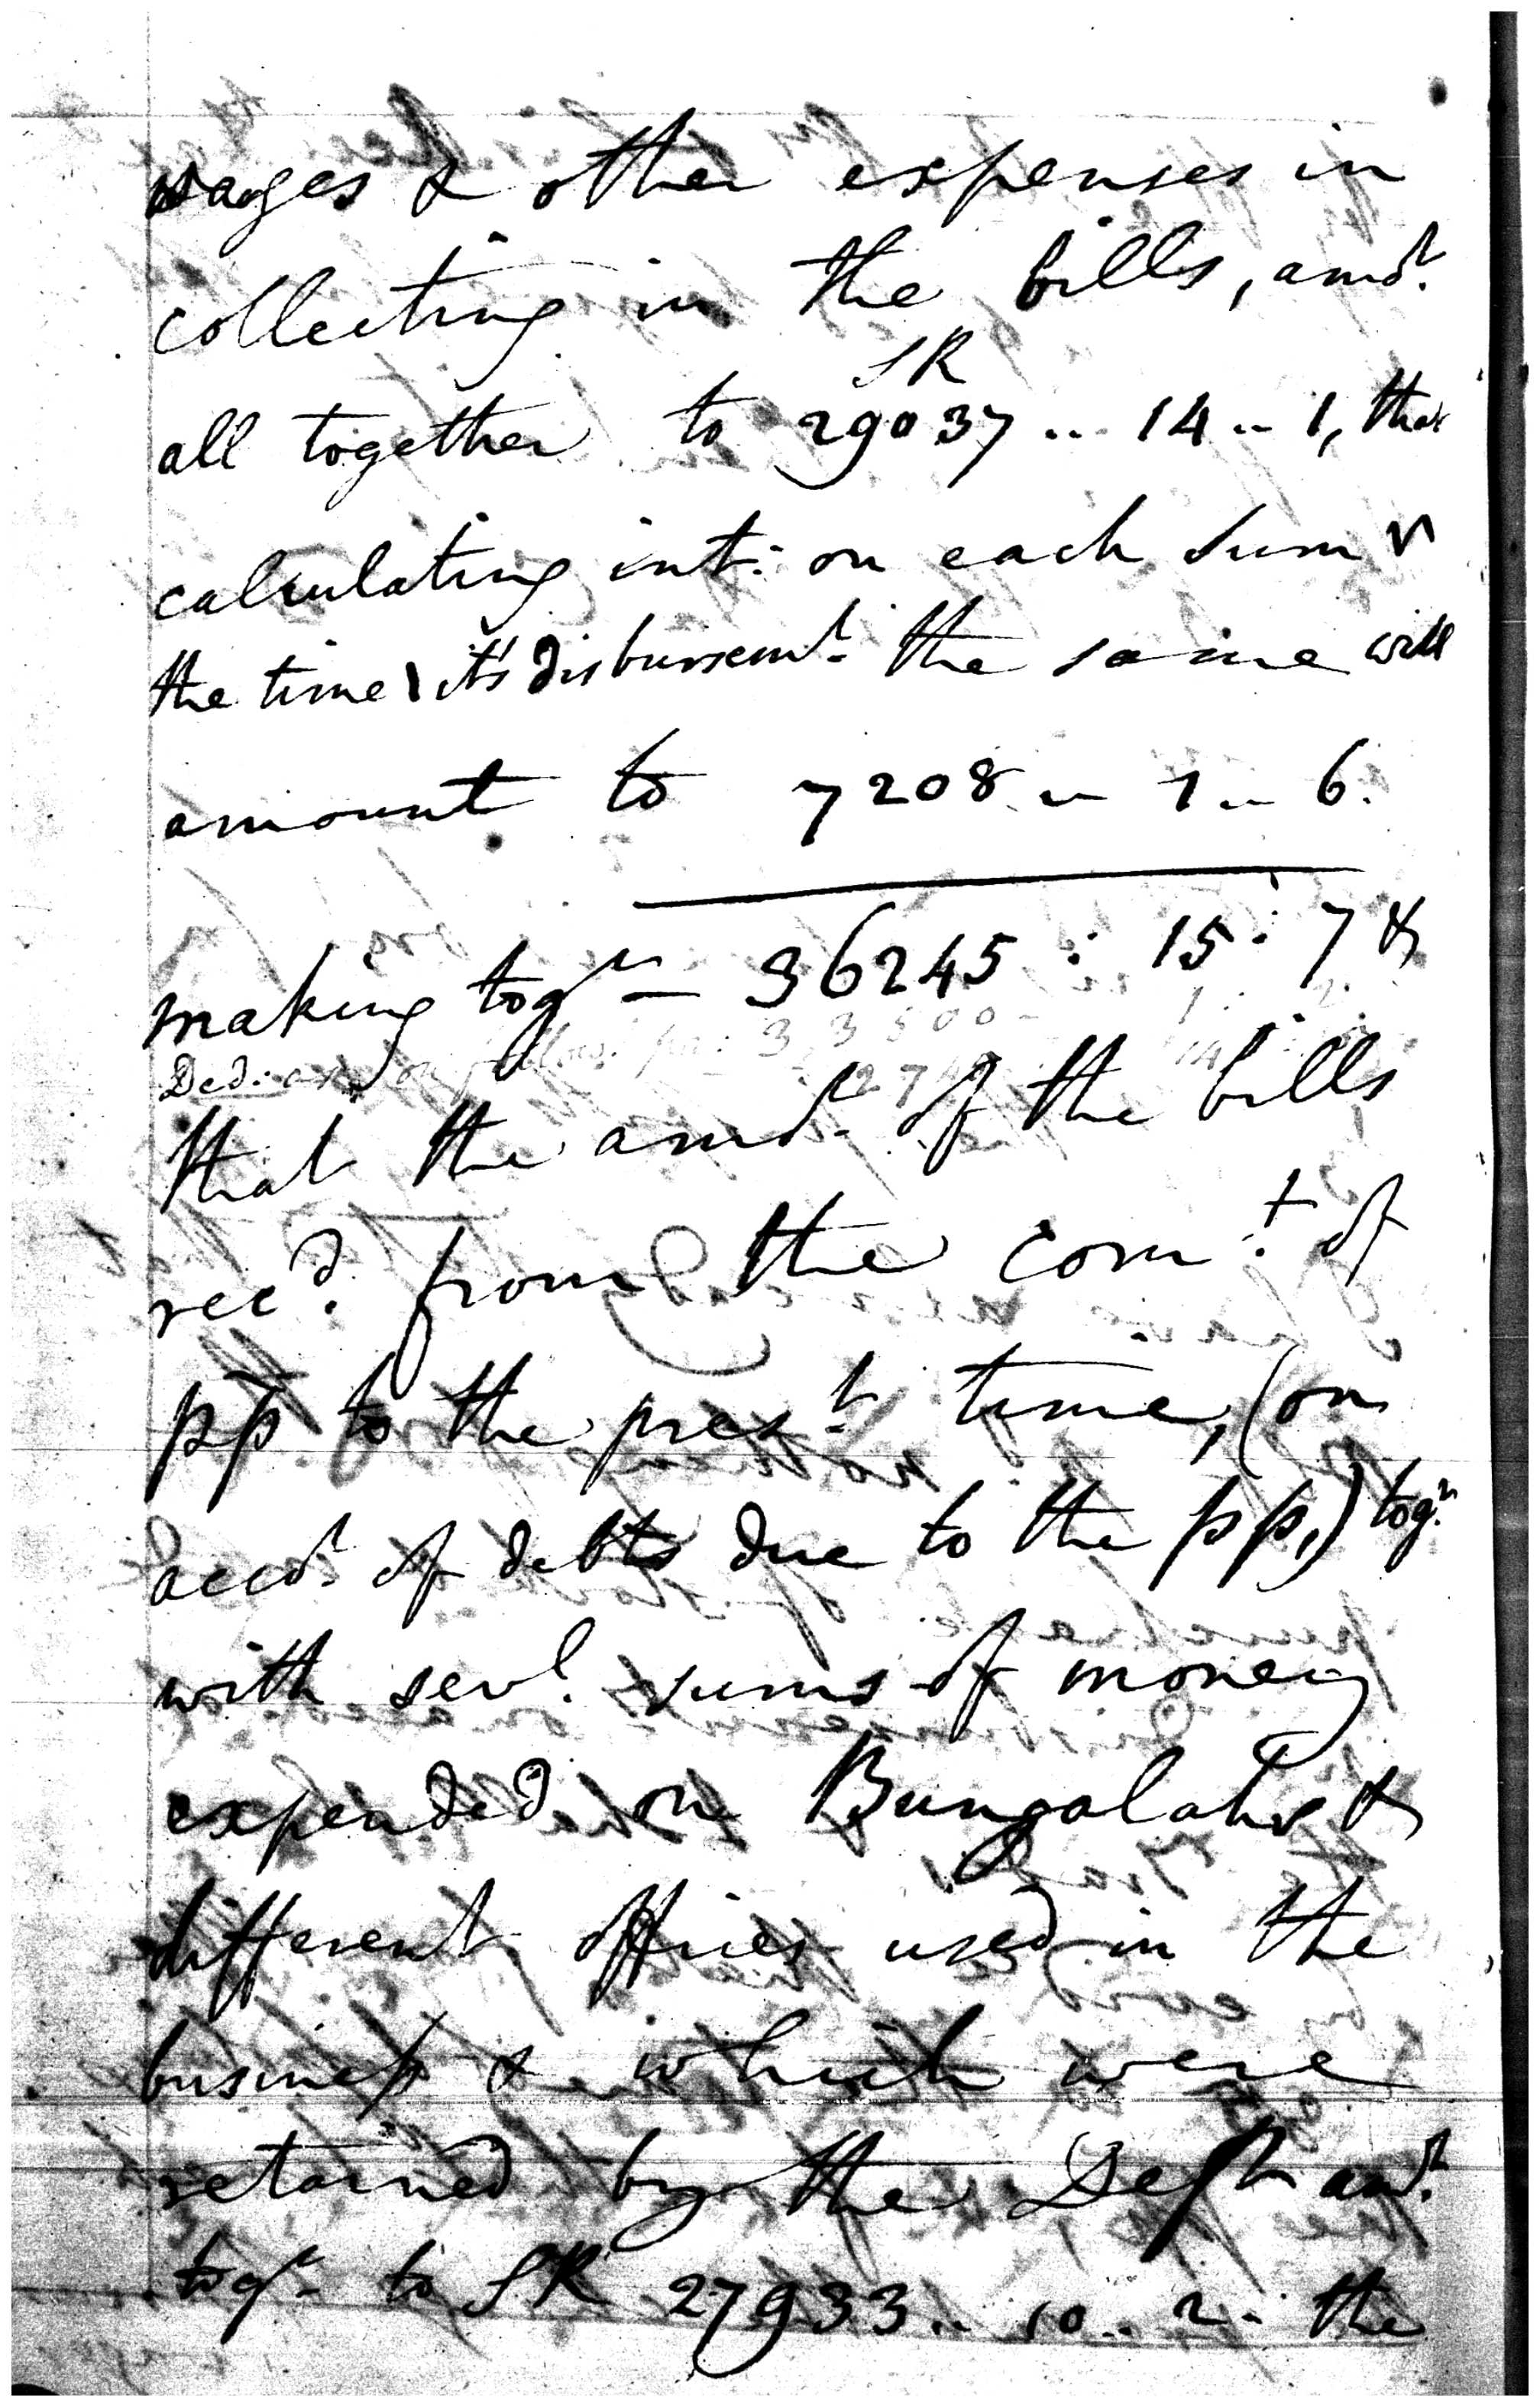 wages & other expenses in
collecting in the bills, amot.
SR
all together to 29037 .. 14 .. 1, that
calculating int: on each sum
the time its disbursemt. the same will
amount to 7208 .. 1 .. 6.
making togr — 36245 : 15 : 7 &
Ded:
that the amot. of the bills
recd. from the comt. of
pp to the prest. time, (on
accot. of debts due to the pp,) togr.
with sevl. sums of money
expended on Bungalahs &
different offices used in the
business & which were
retained by the Deft amt.
togr. to SR 27933 .. 10 .. 2 - the